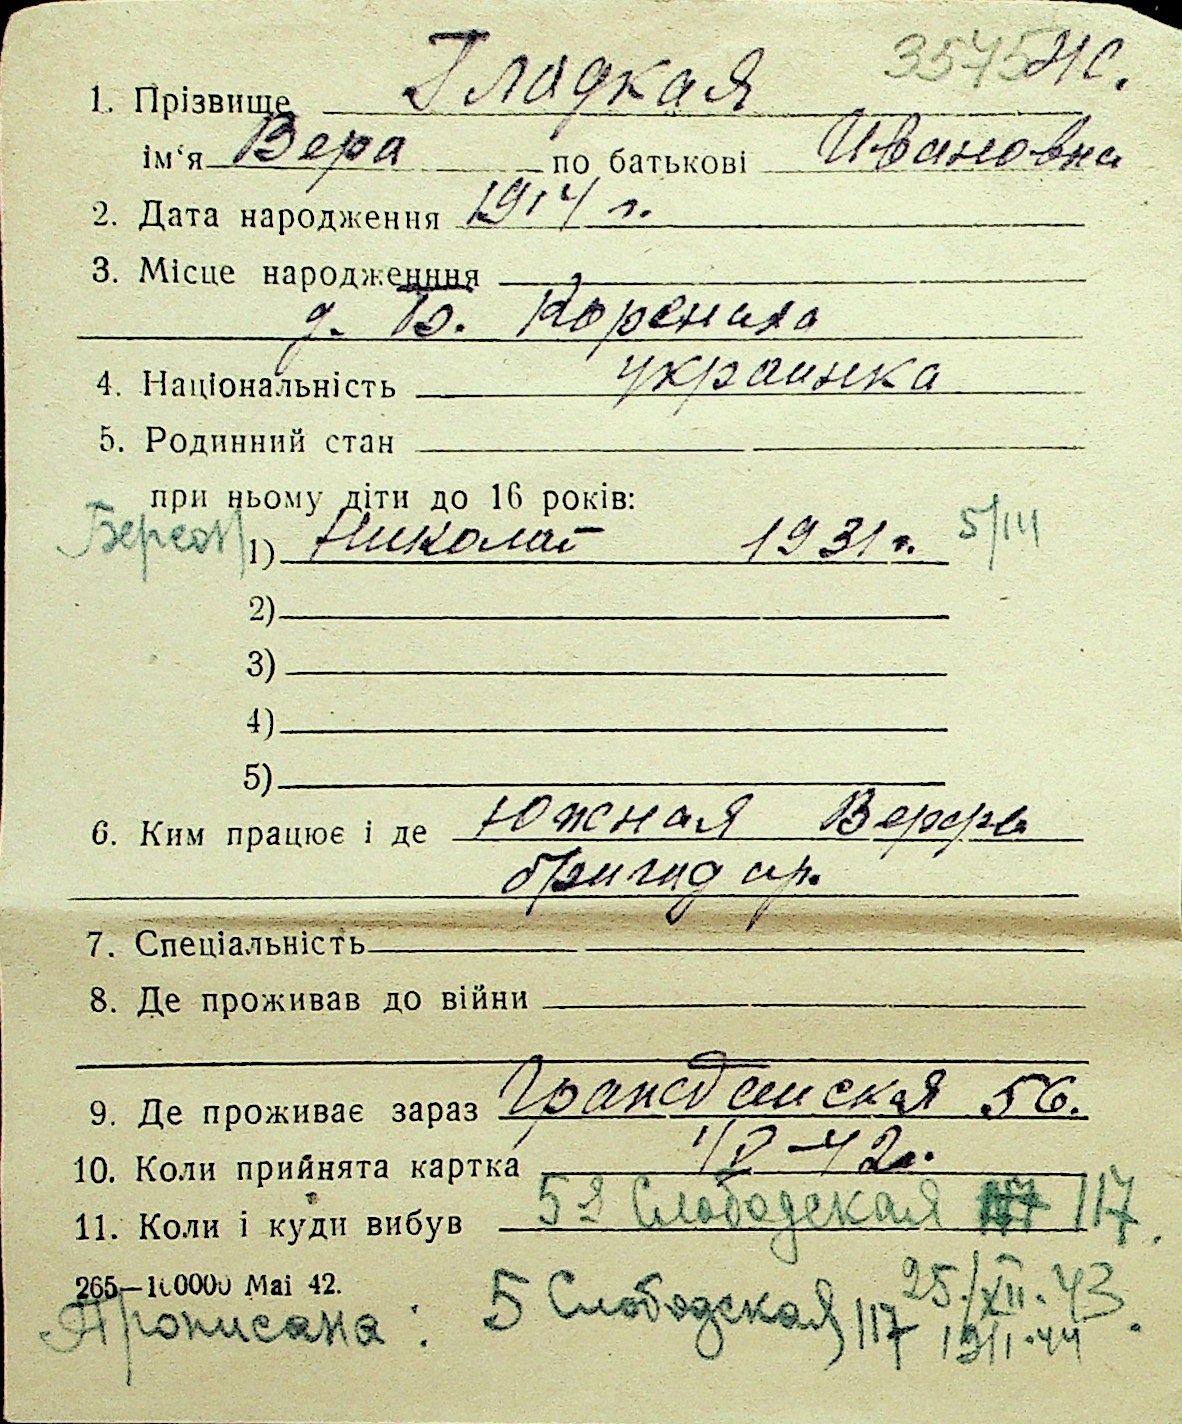 3575 НС.
1. Прізвище Гладкая
ім‘я Вера по батькові Ивановна
2. Дата народження 1914 г.
3. Місце народженння
д. Б. Корениха
4. Національність украинка
5. Родинний стан
при ньому діти до 16 років:
1) Николай 1931 г. 5/III
2)
3)
4)
5)
6. Ким працює і де Южная Верфь
бригадир.
7. Спеціальність
8. Де проживав до війни
9. Де проживає зараз Гражданская 56.
10. Коли прийнята картка 1/V-42г.
11. Коли і куди вибув 5я Слободская 117.
265—100000 Маі 42. 25/XII·43
Прописана: 5 Слободская 117